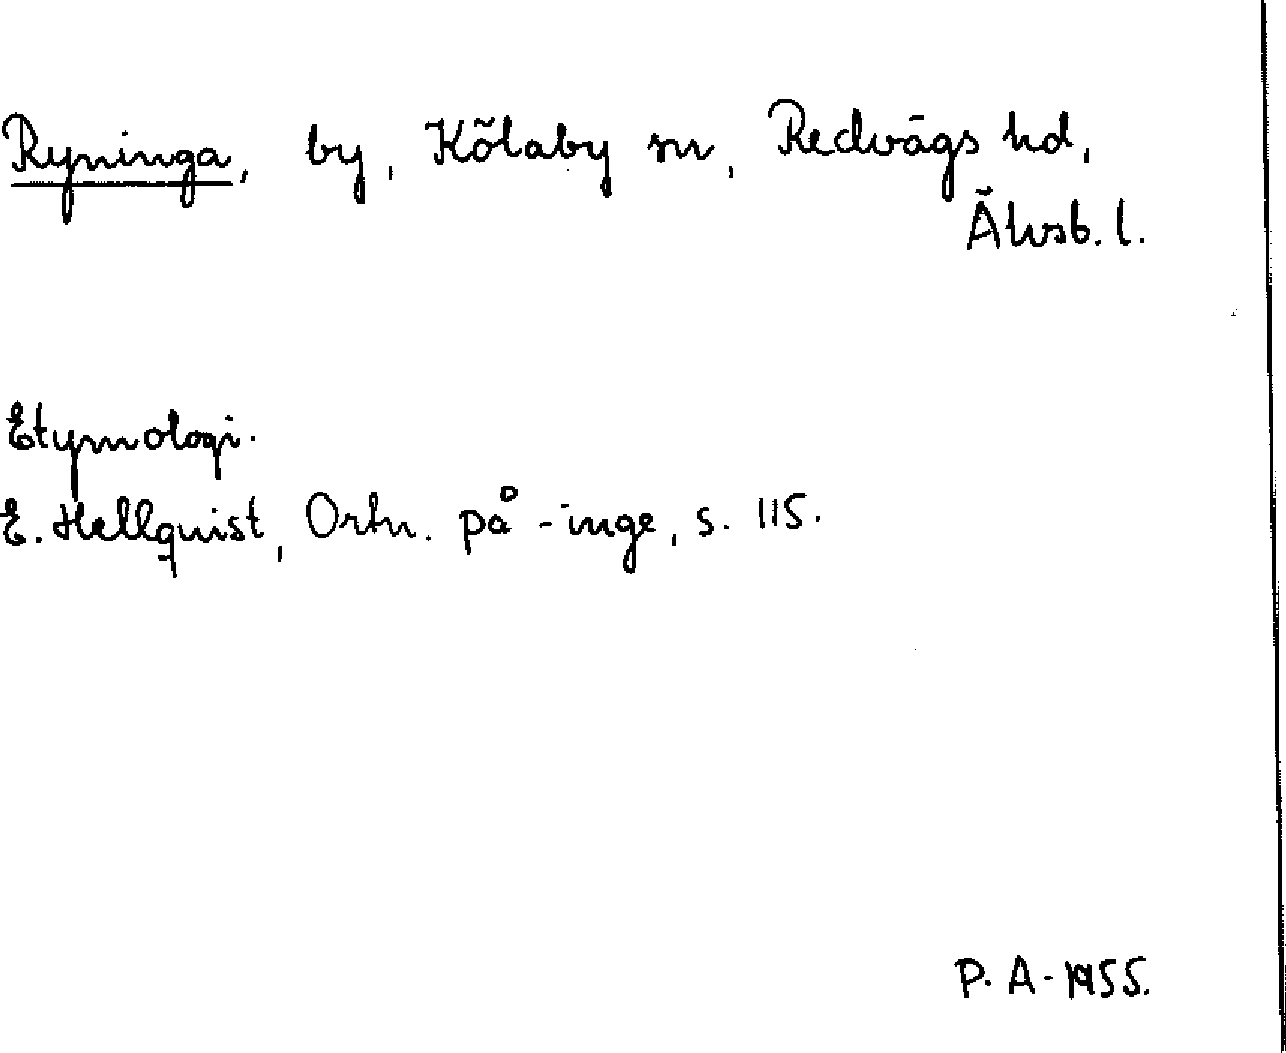 Ryninga, by, Kölaby sn, Redvägs hd,
Älvsb. l.
Etymologi.
E. Hellquist, Ortn. på -inge, s. 115.
P. A-1955.